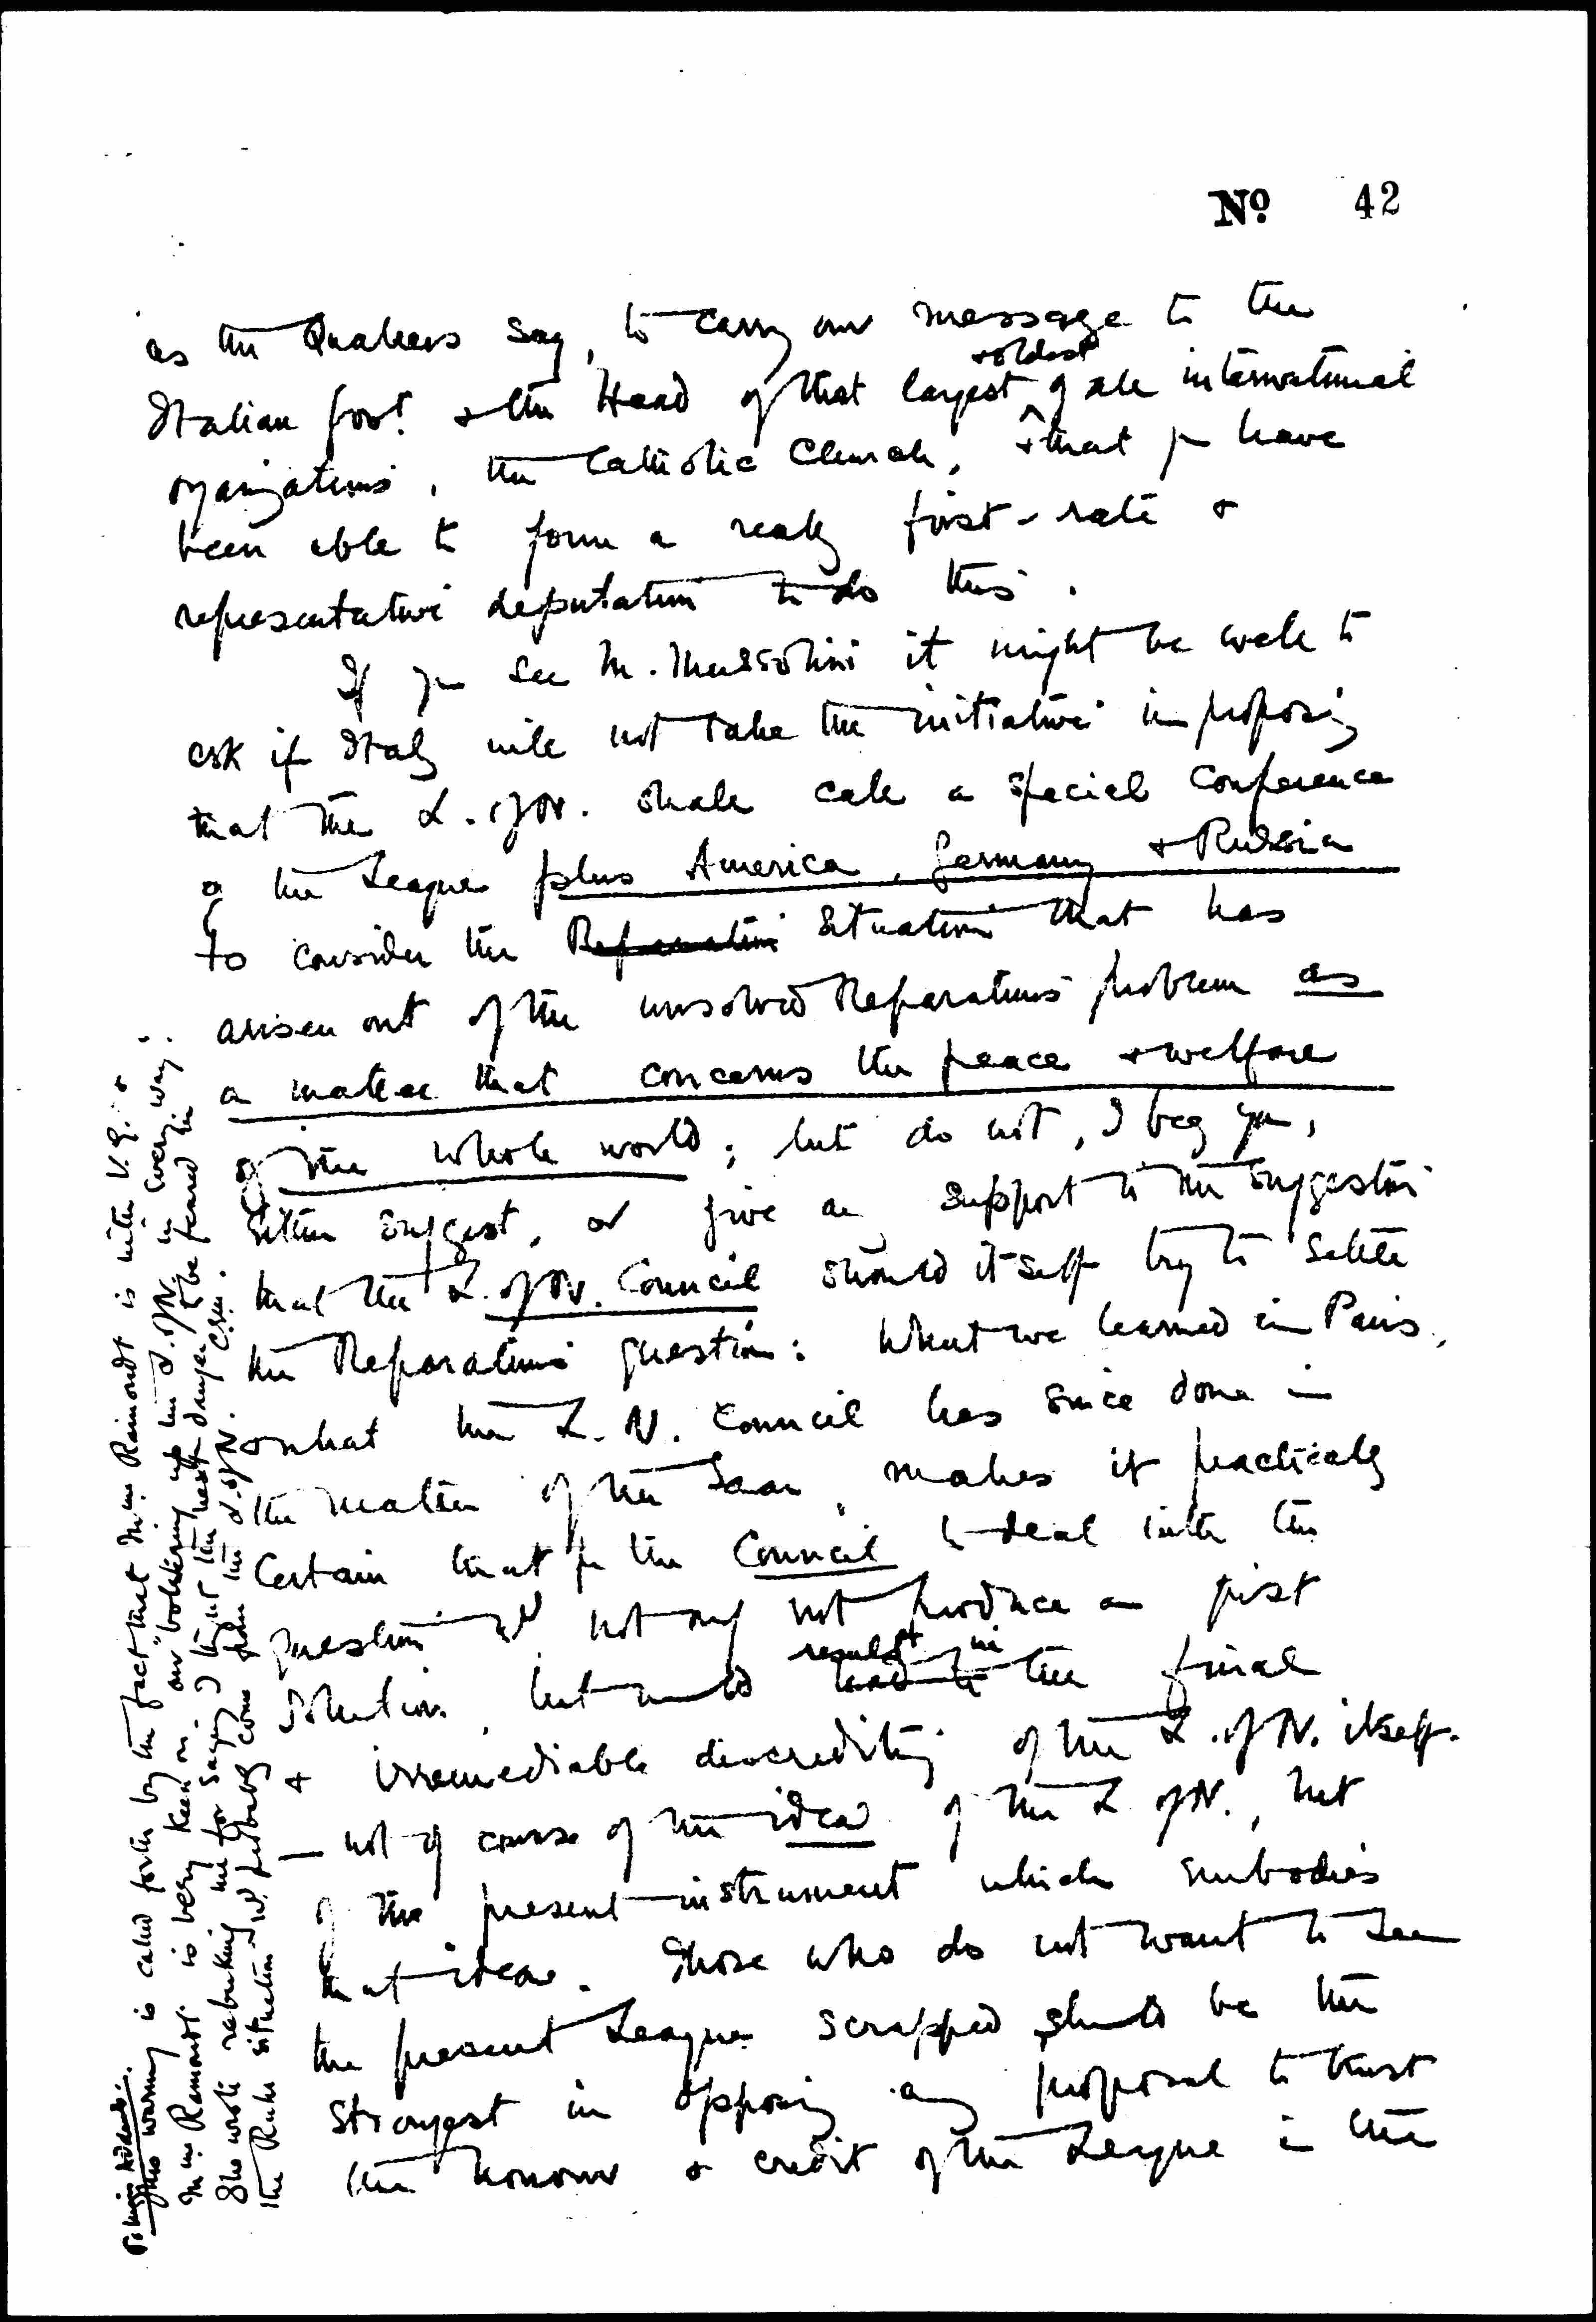 No 42
as the Quakers say, to carry our message to the
+ oldest
Italian Govt. + the Head of that largest ^ of all international
organizations, the Catholic Church, + that you have
been able to form a really first-rate +
representative deputation to do this.
If you see M. Mussolini it might be well to
ask if Italy will not take the initiative in proposing
that the L. of N. shall call a special Conference
of the League plus America, Germany + Russia
to consider the Reparations situation that has
arisen out of the unsolved Reparations problem as
a matter that concerns the peace + welfare
of the whole world; but do not, I beg you,
either suggest, or give any support to the suggestion
that the L. of N. Council should itself try to settle
the Reparations question: What we learned in Paris,
+ what the L. N. Council has since done in
the matter of the Saar, makes it practically
certain that for the Council to deal with the
question wd. not only not produce a just
result in
solution, but would lead to the final
+ irremediable discrediting of the L. of N. itself.
— not of course of the idea of the L of N., but
of the present instrument which embodies
that idea. Those who do not want to see
the present League scrapped should be the
strongest in opposing any proposal to trust
the honour + credit of the League in the
To Miss Addams:
This warning is called forth by the fact that Mme Ramondt is with V. G. +
Mme Ramondt is very keen on our "bolstering up the L. of N. in every way".
She wrote rebuking me for saying I thought the next danger to be feared in
the Ruhr situation wd. probably come from the L. of N.